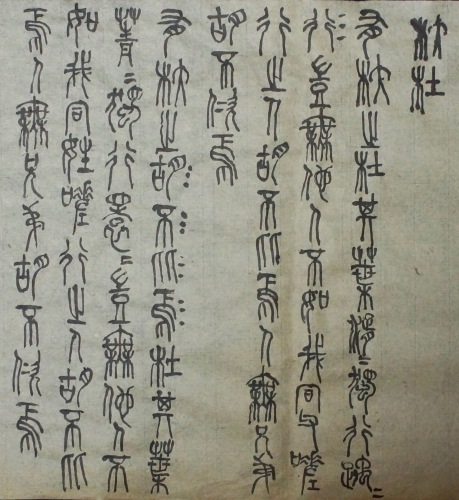 杕杜
有杕之杜其葉湑〻獨行踽〻
行豈無他人不如我同父嗟
行之人胡不比焉人無兄弟
胡不佽焉
有杕之胡不比焉杜其葉
菁〻獨行睘〻豈無他人不
如我同姓嗟行之人胡不比
焉人無兄弟胡不佽焉